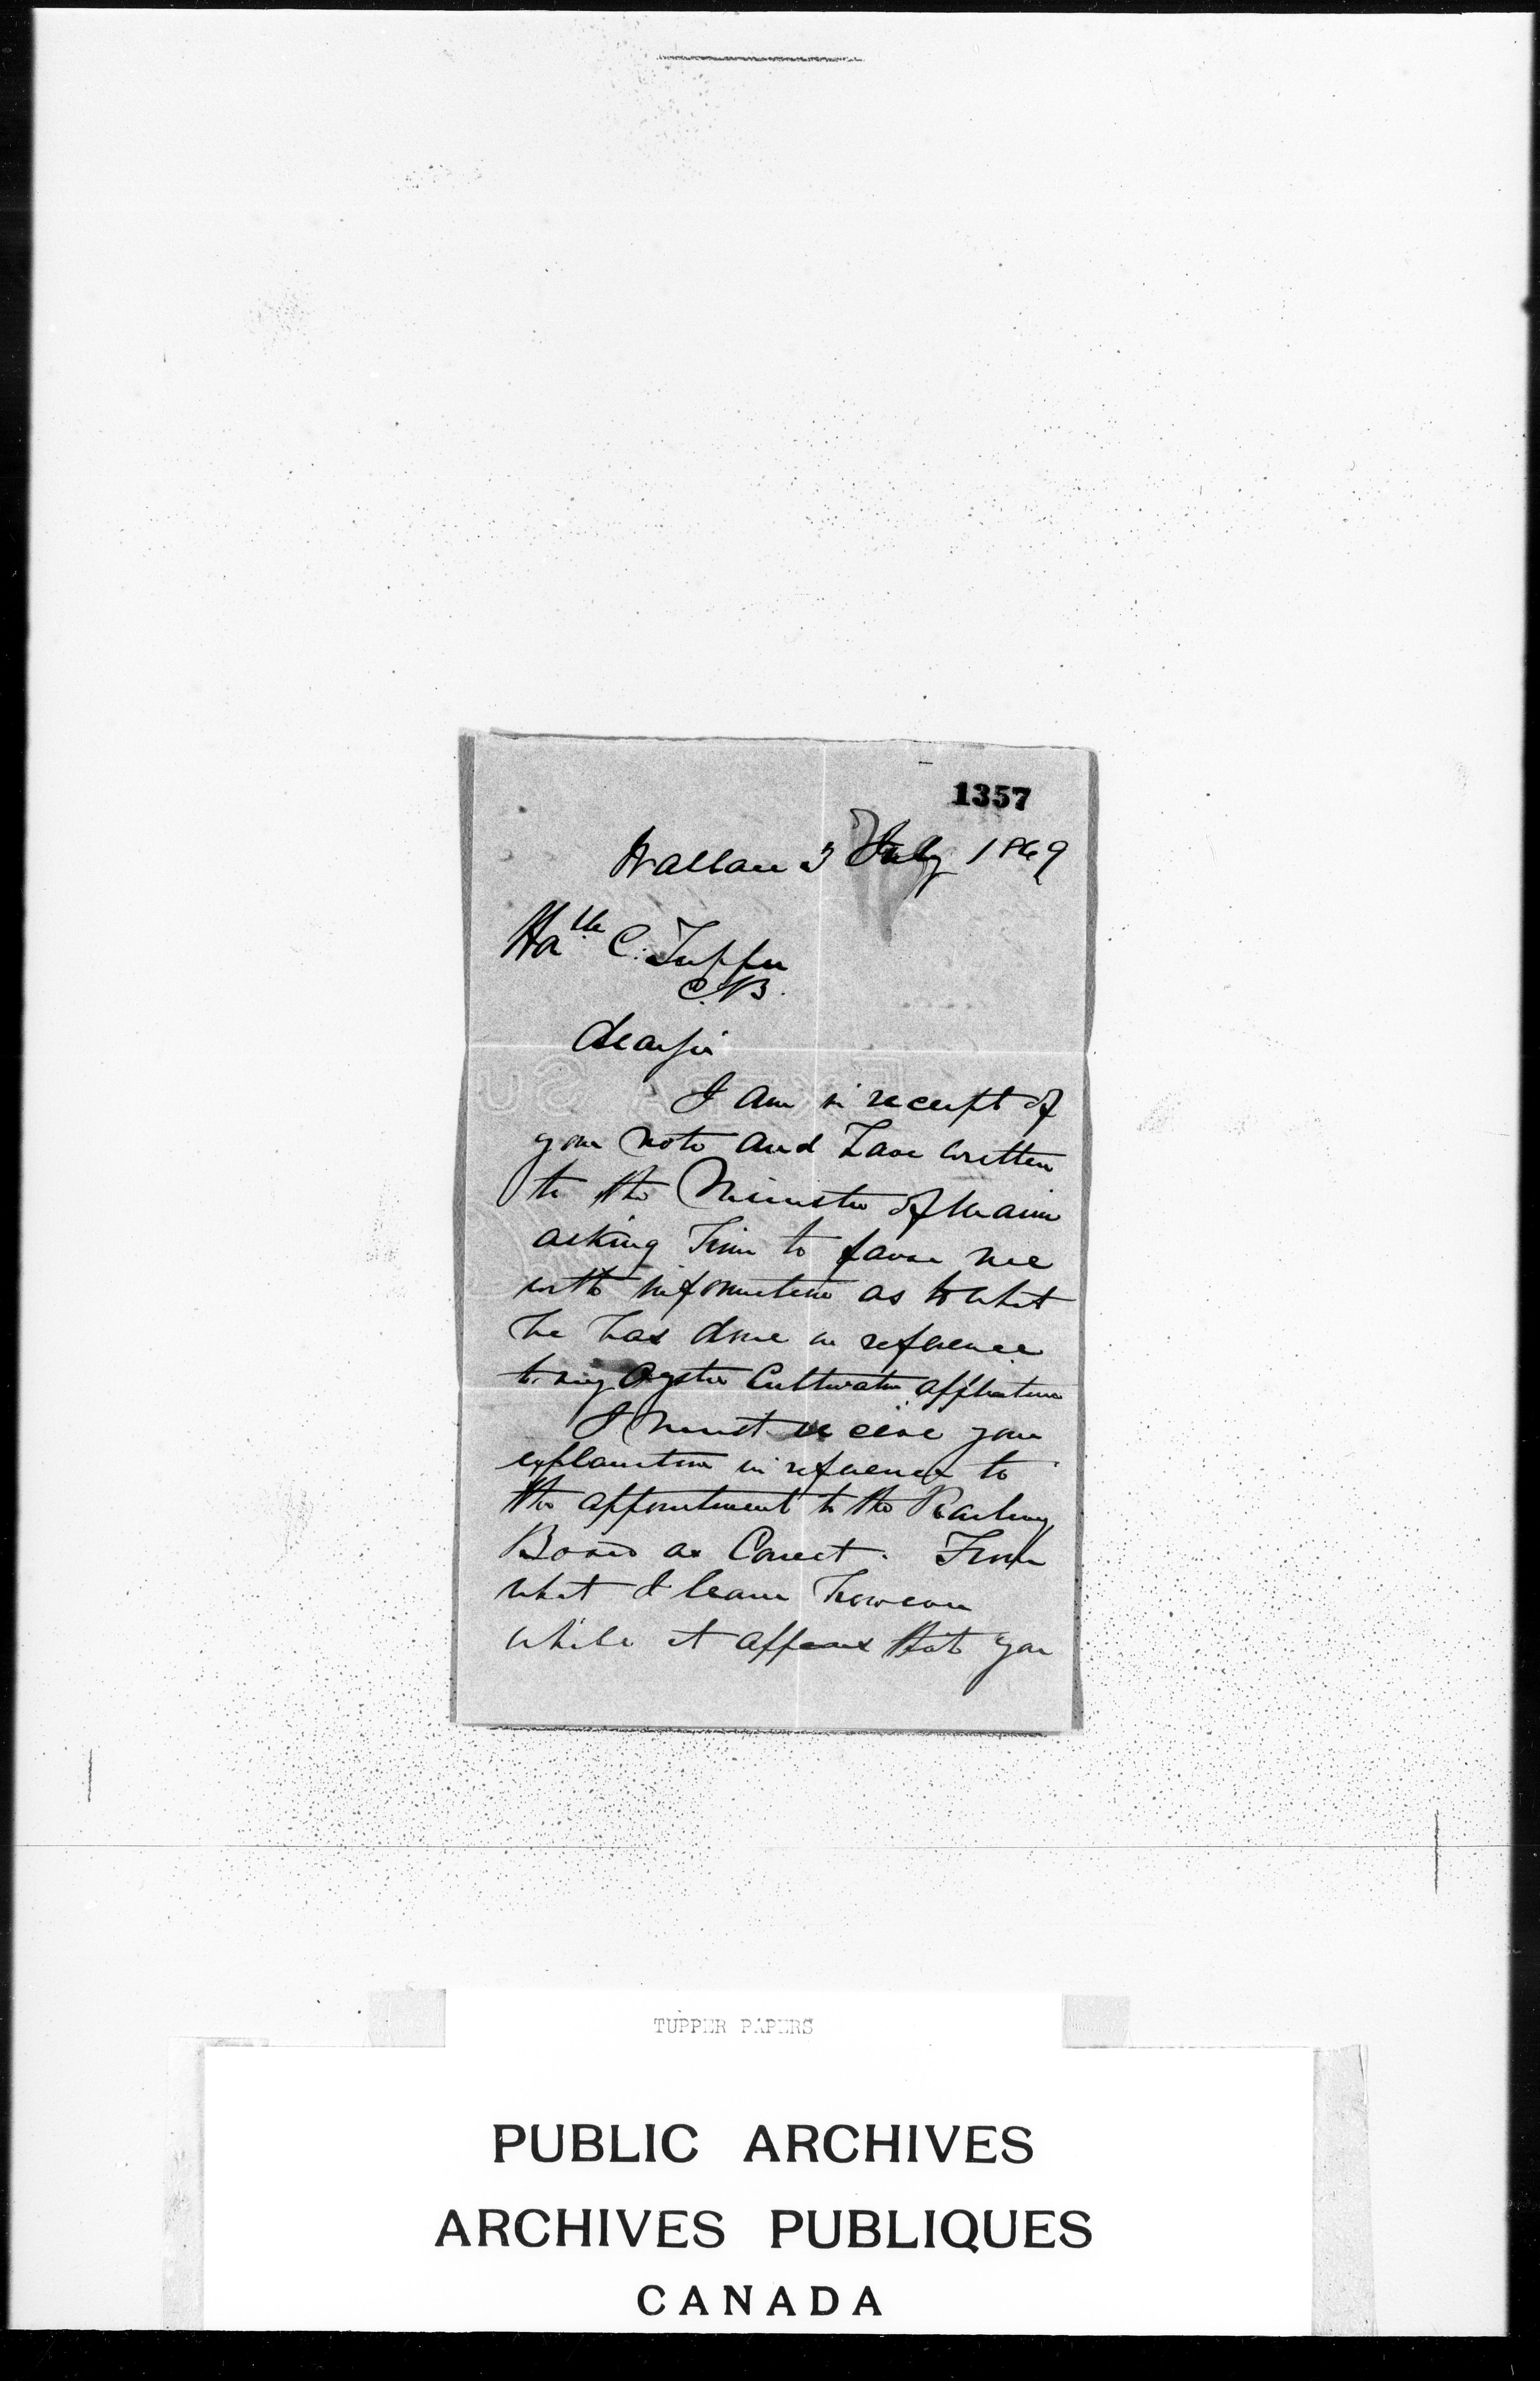 1357
Wallace 3 July 1869
Honble C. Tupper
C.B.
Dear Sir
I am in receipt of
your note and have written
to the Minister of Marine
asking him to favor me
with information as to what
he has done in reference
to my Oyster Cultivation application
I must receive your
explanation in reference to
the appointment to the Railway
Board as Correct. From
what I learn however
while it appears that you
TUPPER PAPERS
PUBLIC ARCHIVES
ARCHIVES PUBLIQUES
CANADA